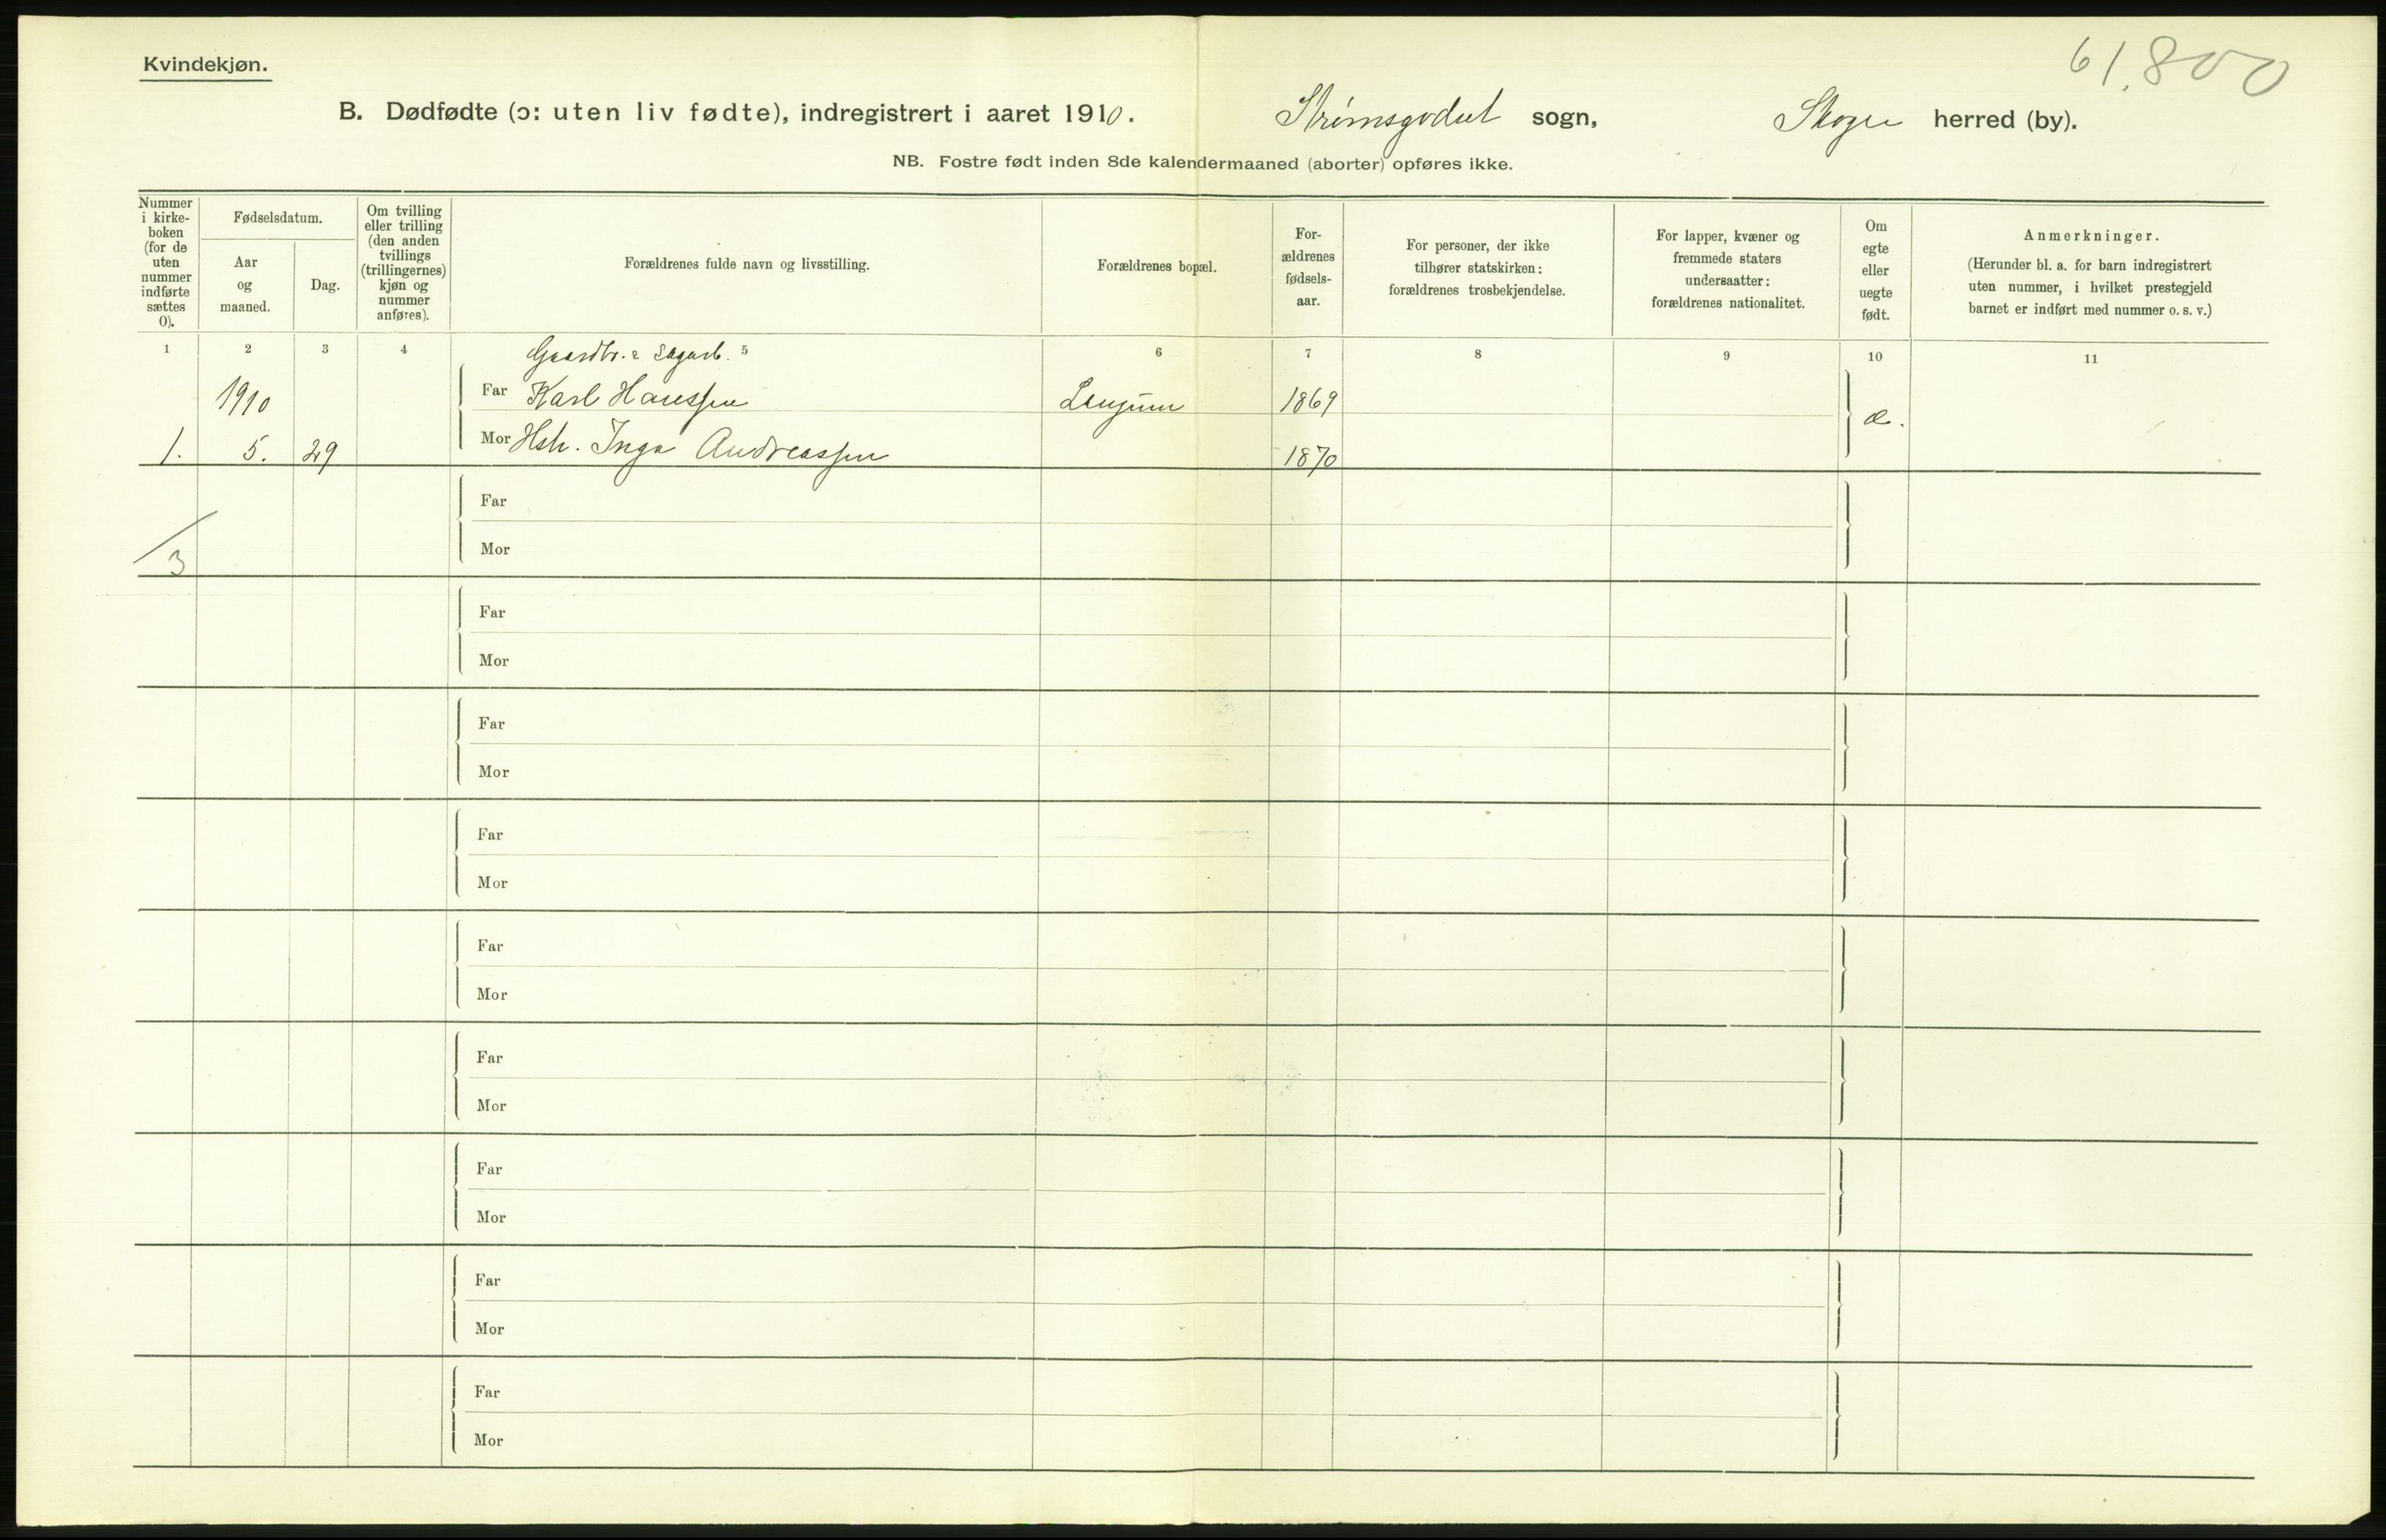 61.800
Kvindekjøn.
B. Dødfødte (ɔ: uten liv fødte), indregistrert i aaret 1910. Strømsgodset sogn, Skoger herred (by).
NB. Fostre født inden 8de kalendermaaned (aborter) opføres ikke.
Nummer
i kirke-
boken
(for de
uten
nummer
indførte
sættes
0).
Fødselsdatum.
Aar
og
maaned.
Dag.
Om tvilling
eller trilling
(den anden
tvillings
(trillingernes)
kjøn og
nummer
anføres).
Forældrenes fulde navn og livsstilling.
Forældrenes bopæl.
For-
ældrenes
fødsels-
aar.
For personer, der ikke
tilhører statskirken:
forældrenes trosbekjendelse.
For lapper, kvæner og
fremmede staters
undersaatter:
forældrenes nationalitet.
Om
egte
eller
uegte
født.
Anmerkninger.
(Herunder bl. a. for barn indregistrert
uten nummer, i hvilket prestegjeld
barnet er indført med nummer o. s. v.)
1 2 3 4 5 6 7 8 9 10 11
Gaardbr. & Sagarb.
1910 Far Karl Hanssen 1869 æ.
1. 5. 29 Mor Hstr. Inga Andreassen 1870
Far
3 Mor
Far
Mor
Far
Mor
Far
Mor
Far
Mor
Far
Mor
Far
Mor
Far
Mor
Far
Mor